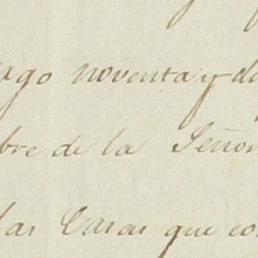 noventa y
bre de la Señor
las Casas que co